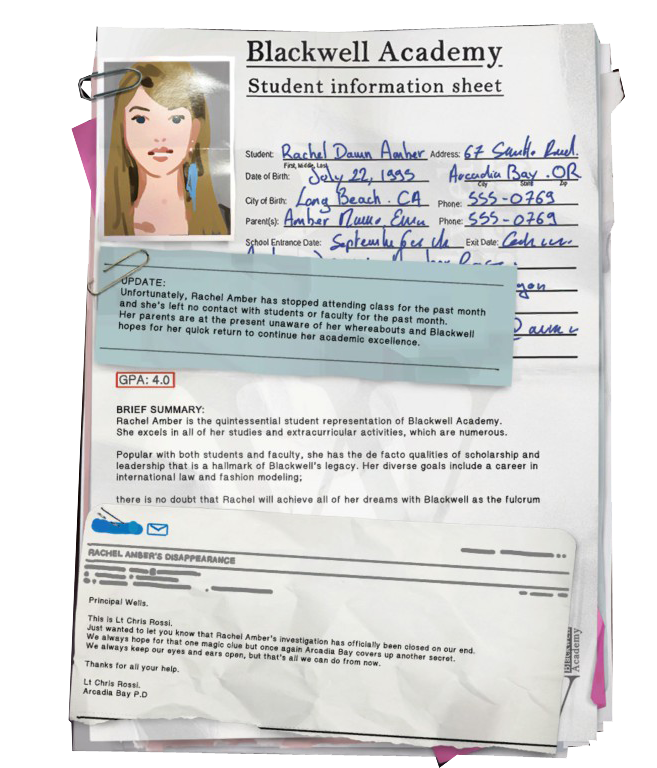 Blackwell Academy
Student information sheet
Student: Rachel Dawn Amber Address: 67
First, Middle, Last
Date of Birth: July 22, 1995 Arcadia Bay . OR
City State Zip
City of Birth: Long Beach . CA Phone: 555-0769
Parent(s): Amber Phone: 555-0769
School Entrance Date: September Exit Date:
UPDATE:
Unfortunately, Rachel Amber has stopped attending class for the past month
and she's left no contact with students or faculty for the past month.
Her parents are at the present unaware of her whereabouts and Blackwell
hopes for her quick return to continue her academic excellence.
GPA: 4.0
BRIEF SUMMARY:
Rachel Amber is the quintessential student representation of Blackwell Academy.
She excels in all of her studies and extracurricular activities, which are numerous.
Popular with both students and faculty, she has the de facto qualities of scholarship and
leadership that is a hallmark of Blackwell's legacy. Her diverse goals include a career in
international law and fashion modeling;
there is no doubt that Rachel will achieve all of her dreams with Blackwell as the fulcrum
RACHEL AMBER'S DISAPPEARANCE
Principal Wells.
This is Lt Chris Rossi.
Just wanted to let you know that Rachel Amber's investigation has officially been closed on our end.
We always hope for that one magic clue but once again Arcadia Bay covers up another secret.
We always keep our eyes and ears open, but that's all we can do from now.
Thanks for all your help.
Lt Chris Rossi.
Arcadia Bay P.D
Blackwell
Academy